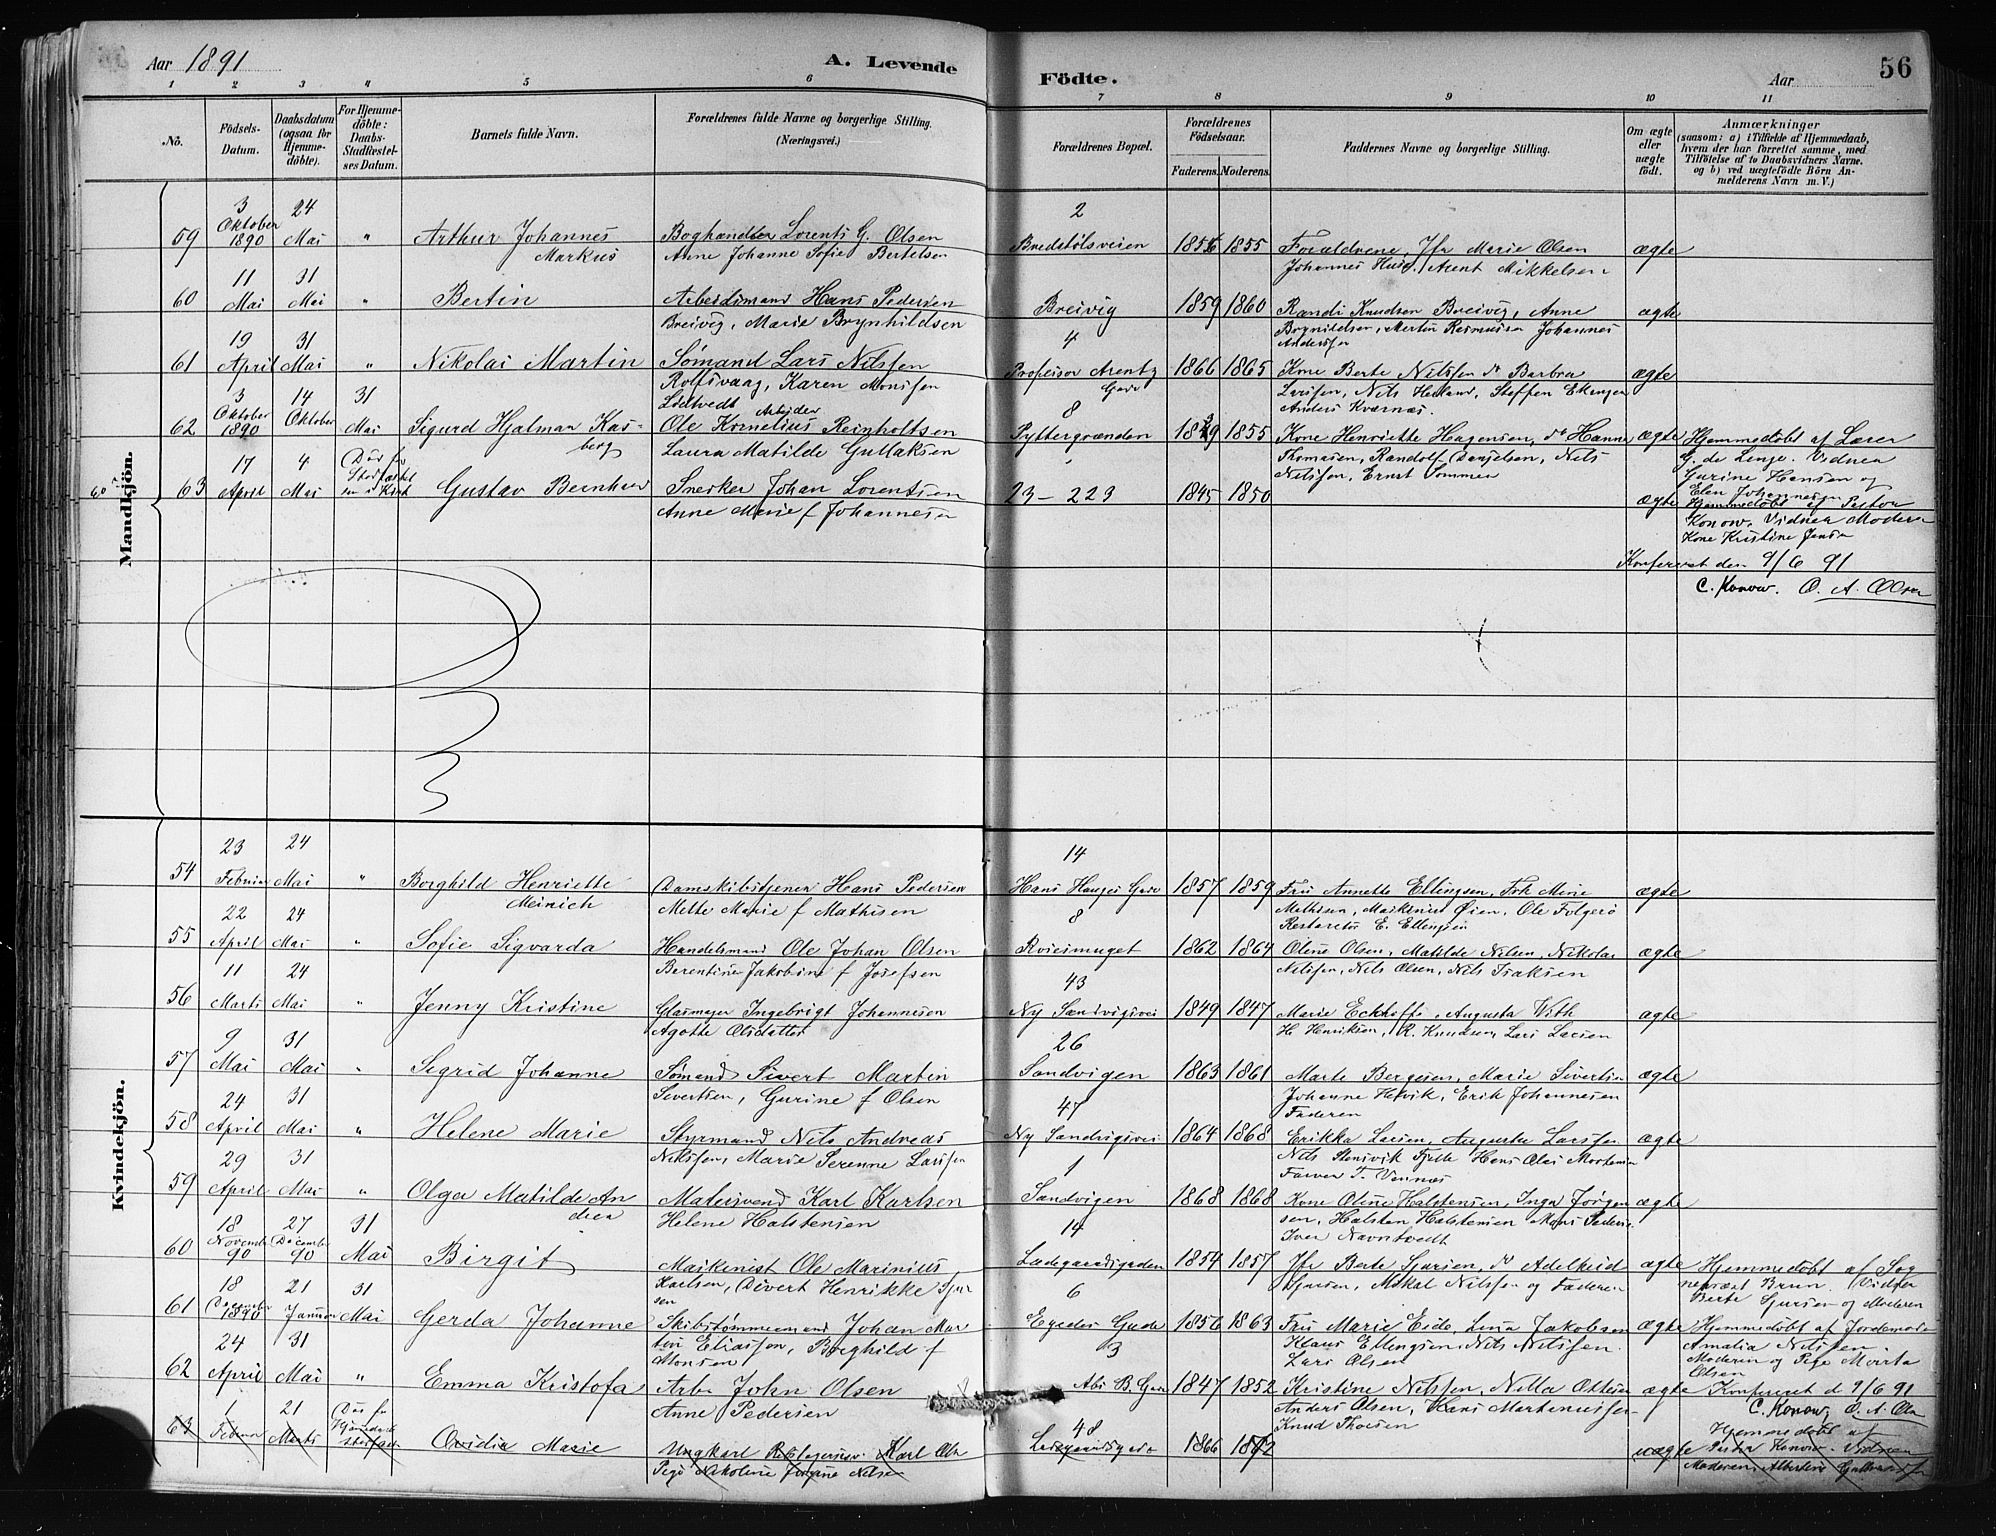 Aar 1891
A. Levende Födte.
Aar
56
1 2 3 4 5 6 7 8 9 10 11
No.
Födsels-Datum.
Daabsdatum (ogsaa for Hjemme-döbte).
For Hjemme-döbte: Daabs-Stadfæstel-ses Datum.
Barnets fulde Navn.
Forældrenes fulde Navne og borgerlige Stilling. (Næringsvei.)
Forældrenes Bopæl.
Forældrenes Födselsaar.
Faderens. Moderens.
Faddernes Navne og borgerlige Stilling.
Om ægte eller uægte födt.
Anmærkninger
(saasom: a) i Tilfælde af Hjemmedaab, hvem der har forrettet samme, med Tilföielse af to Daabsvidners Navne. og b) ved uægtefödte Börn An-melderens Navn m. V.)
Mandkjön.
59 3 Oktober 1890 24 Mai " Arthur Johannes Markus
Boghandler Lorents G. Olsen
Anne Johanne Sofie Bertelsen
2 Bredstølsveien 1856 1855
Forældrene, Jfr Marie Olsen
Johannes Husø, Arent Mikkelsen
ægte
60 11 Mai 31 Mai " Bertin
Arbeidsmand Hans Pedersen
Breivig, Marie Brynhildsen
Breivig 1859 1860
Randi Knudsen Breivig, Anne
Brynildsen, Martin Rasmussen Johannes
Anderssen
ægte
61 19 April 31 Mai " Nikolai Martin
Sømand Lars Nilssen
Rolfsvaag, Karen Monssen
Lødtvedt
4 Professor Arentz Gade 1866 1865
Kone Berte Nilssen do Barbra
Larssen, Nils Helland, Steffen
Anders Kværnæs.
ægte
62 3 Oktober 1890 14 Oktober 31 Mai Sigurd Hjalmar Kasberg
Arbeider
Ole Kornelius Reinholtsen
Laura Matilde Gullaksen
8 Pyttergrænden 1855
Kone Henriette Haagensen, do Hanne
Thomasen, Randolf Danjelsen, Nils
Nilssen, Ernst Sommer
ægte
Hjemmedøbt af Lærer
G. de Lange. Vidner
Gurine Hansen og
Elen Johannesen
63 17 April 4 Mai Død før Stadfæstelsen i Kirk Gustav Bernhar
Snekker Johan Lorentsen
Anne Marie f Johannesen
23 - 223 1845 1850
ægte
Hjemmedøbt af Pastor
Konow. Vidner Moderen
Kone Kristine Jensen
Konfereret den 9/6 91
C. Konow. O. A. Olsen
Kvindekjön.
54 23 Februar 24 Mai " Borghild Henriette Meinich
Damskibstjener Hans Pedersen
Mette Marie f Mathisen
14 Hans Hauges Gade 1857 1859
Fru Annette Ellingsen, Frk Mine
Mathisen, Maskinist Øien, Ole Folgerø
E. Ellingsen
ægte
55 22 April 24 Mai " Sofie Sigvarda
Handelsmand Ole Johan Olsen
Berentine Jakobine f Josefsen
8 1862 1864
Oline Olsen, Matilde Nilsen, Nikolai
Nilssen, Nils Olsen, Nils Isaksen
ægte
56 11 Marts 24 Mai " Jenny Kristine
Glasmager Ingebrigt Johannesen
Agathe Olsdatter
43 Ny Sandvigsvei 1849 1847
Marie Eckhoff, Augusta With
H. Henriksen, R. Knudsen, Lars Larsen
ægte
57 9 Mai 31 Mai " Sigrid Johanne
Sømand Sivert Martin
Sivertsen, Gurine f Olsen
26 Sandvigen 1863 1861
Marte Bergesen, Marie Sivertsen
Johanne Hesvik, Erik Johannesen
Faderen
ægte
58 24 April 31 Mai " Helene Marie
Styrmand Nils Andreas
Nilssen, Marie Serenne Larssen
47 Ny Sandvigsvei 1864 1868
Erikka Larsen, Augusta Larssen
Nils Stensvik Fjelle Hans Olai Mortensen
ægte
59 29 April 31 Mai " Olga Matilde Andrea
Matersvend Karl Karlsen
Helene Halstensen
1 Sandvigen 1868 1868
Kone Oline Halstensen, Inga Jørgensen, Halsten Halstensen Mons Peders
Iver Navntvedt
ægte
60 18 November 90 27 December 90 31 Mai Birgit
Maskinist Ole Marinius
Karlsen, Divert Henrikke Sjursen
14 Ladegaardsgaden 1854 1857
Jfr Berte Sjursen, do Adelheid
Sjursen, Mikal Nilssen og Faderen
ægte
Hjemmedøbt af Sognepræst Brun. Vidner
Berte Sjursen og Moderen
61 18 December 1890 21 Januar 31 Mai Gerda Johanne
Skibstømmermand Johan Martin Eliassen, Borghild f
Monsen
6 Egedes Gade 1856 1863
Fru Marie Eide, Lena Jakobsen
Klaus Ellingsen, Nils Nilssen
Lars Olsen
ægte
Hjemmedøbt af Jordemoder
Amalia Nilsen.
Moderen og Pige Marta
Olsen
62 24 April 31 Mai " Emma Kristofa
Arb. John Olsen
Anne Pedersen
3 B. Gade 1847 1852
Kristine Nilssen, Nilla Ottesen
Anders Olsen, Hans Martenussen
Knud Thorsen
ægte
Konfereret d 9/6 91
C. Konow, O. A. Olsen
63 1 Februar 21 Marts Død før Hjemmedaab Ovidia Marie
Ungkarl Karl Olsen
Pige Nikoline Nilsen
48 Ladegaardsgade 1866 1872
uægte
Hjemmedøbt af
Pastor Konow. Vidner
Moderen, Albertine